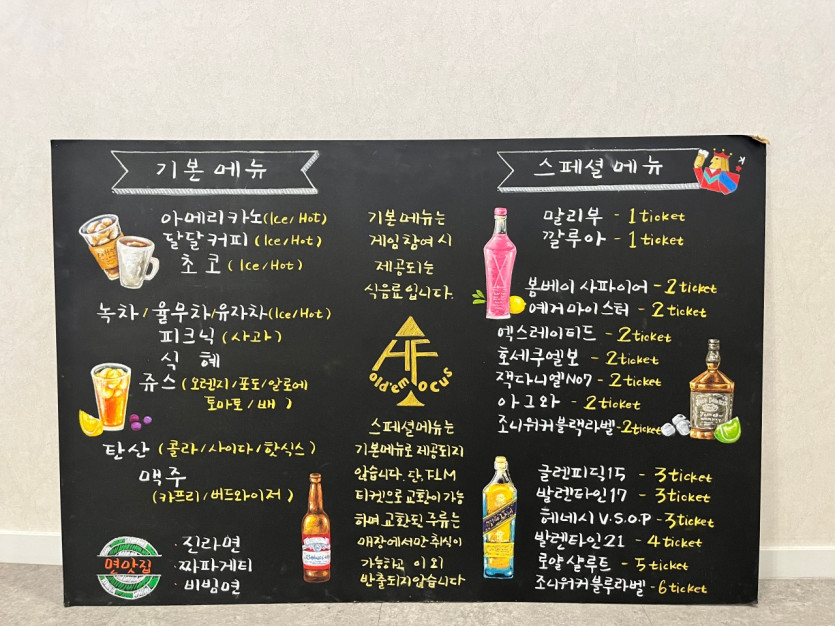 기본 메뉴
아메리카노(Ice/Hot)
달달커피 (Ice/Hot)
초코 (Ice/Hot)
녹차/율무차/유자차(Ice/Hot)
피크닉 (사과)
식 혜
쥬스 (오렌지/포도/알로에
토마토/배 )
탄산 (콜라/사이다/핫식스)
맥주
(카프리/버드와이저)
면맛집
·진라면
·짜파게티
·비빔면
기본메뉴는
게임참여시
제공되는
식음료입니다.
HF
old'em ocus
스페셜메뉴는
기본메뉴로 제공되지
않습니다. 단, F.L.M
티켓으로 교환이 가능
하며 교환된 주류는
매장에서만 취식이
가능하고 이 외
반출되지않습니다
스페셜 메뉴
K
말리부 - 1 ticket
깔루아 - 1 ticket
봄베이 사파이어 - 2 ticket
예거마이스터 - 2 ticket
엑스레이티드 - 2 ticket
호세쿠엘보 - 2 ticket
잭다니엘No7 - 2 ticket
아그와 - 2 ticket
조니워커블랙라벨 - 2 ticket
글렌피딕15 - 3 ticket
발렌타인17 - 3 ticket
헤네시 V.S.O.P - 3 ticket
발렌타인21 - 4 ticket
로얄샬루트 - 5 ticket
조니워커블루라벨 - 6 ticket